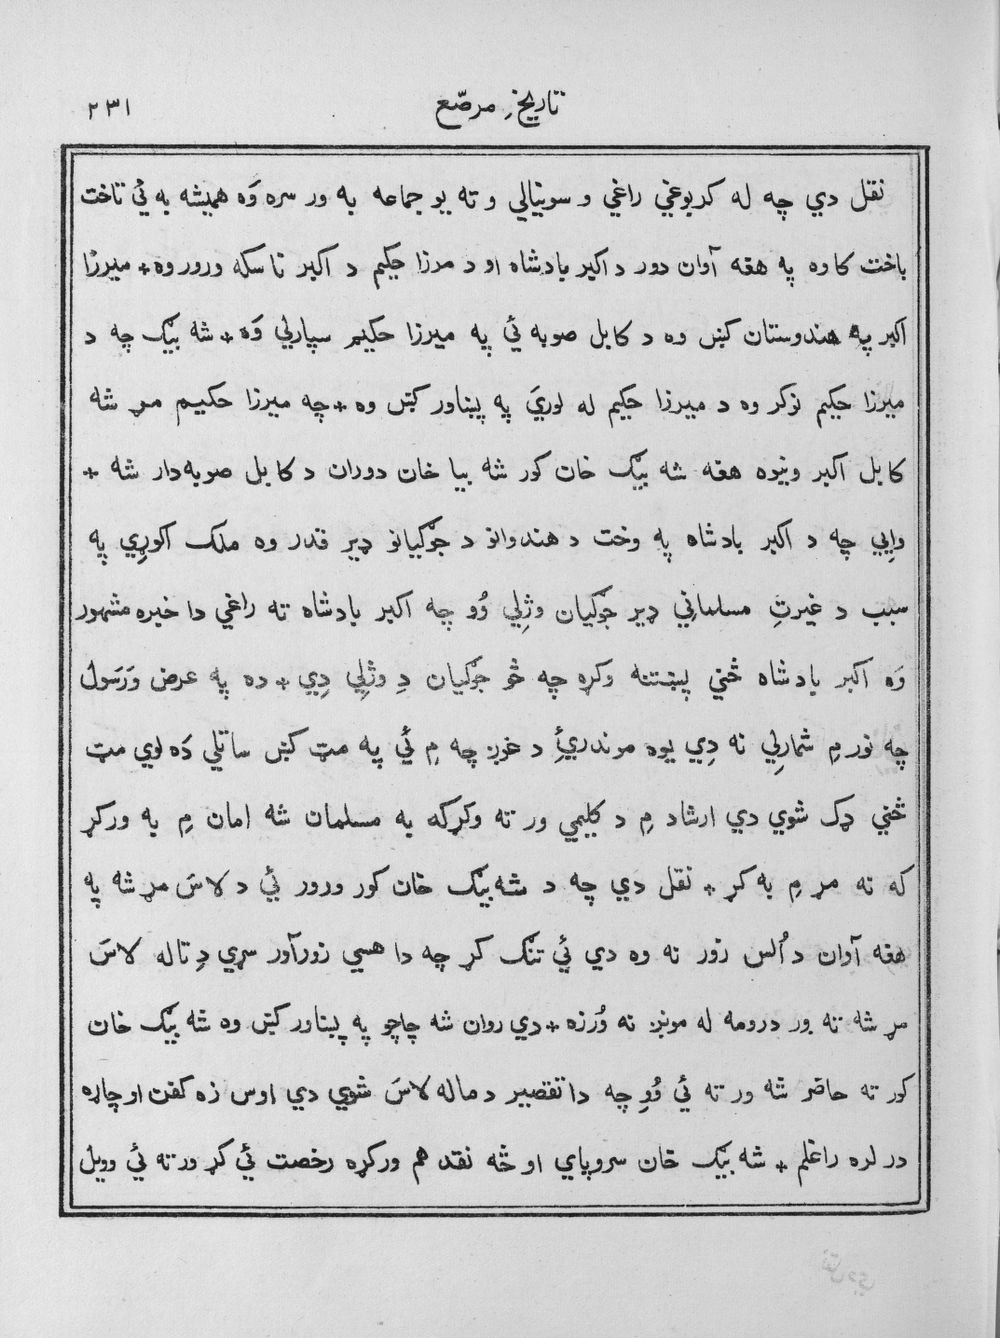 تاریخِ مرصّع
۲۳۱
نقل دي چه له کربوغې راغي و سونیالي و ته یو جماعه به ور سره وَه همیشه به ئې تاخت
باخت کاوه په هغه آوان دور د اکبر بادشاه او د مرزا حکیم د اکبر ناسکه ورور وه + میرزا
اکبر په هندوستان کښ وه د کابل صوبه ئې په میرزا حکیم سپارلي وَه + شه بېک چه د
میرزا حکیم نوکر وه د میرزا حکیم له لوريَ په پښاور کښ وه + چه میرزا حکیم مړ شه
کابل اکبر ونیوه هغه شه بېک خان کور شه بیا خان دوران د کابل صوبه‌دار شه +
وايي چه د اکبر بادشاه په وخت د هندوانو د جوګیانو ډېر قدر وه ملک اکوړي په
سبب د غیرتِ مسلمانۍ ډېر جوګیان وژلي وُو چه اکبر بادشاه ته راغي دا خبره مشهور
وَه اکبر بادشاه څني پښتنه وکړه چه څو جوګیان دِ وژلي دِي + ده په عرض وَرَسول
چه نور مِ شمارلي نه دِي یوه موندرۍ د غوږ چه مِ ئې په مټ کښ ساتلي دَه لوي مټ
څني ډک شوي دي ارشاد مِ د کلیمې ور ته وکړ که به مسلمان شه امان مِ به ورکړ
که نه مړ مِ به کړ + نقل دي چه د شه بېک خان کور ورور ئې د لاسَ مړ شه په
هغه آوان د اُلس زور نه وه دي ئې تنګ کړ چه دا هسې زورآور سړي دِ تا له لاسَ
مړ شه ته ور درومه له موږ نه وُرزه + دي روان شه چاچو په پښاور کښ وه شه بېک خان
کور ته حاضر شه ور ته ئې وُوِ چه دا تقصیر د ما له لاسَ شوي دي اوس زه کفن او چاړه
در لره راغلم + شه بېک خان سروپاي او څه نقد هم ورکړه رخصت ئې کړ ور ته ئې وویل